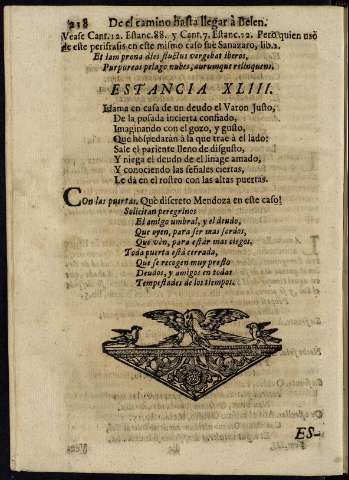 218 De el camino hasta llegar à Belen.
Vease Cant.12. Estanc.88. y Cant.7. Estanc.12. Pero quien usò
de este perifrasis en este mismo caso fue Sanazaro, lib.2.
Et iam prona dies fluctus vergebat iberos,
Purpureas pelago nubes, aurumque relinquens.
ESTANCIA XLIII.
Llama en casa de un deudo el Varon Justo,
De la posada incierta confiado,
Imaginando con el gozo, y gusto,
Que hospedaràn à la que trae à el lado:
Sale el pariente lleno de disgusto,
Y niega el deudo de el linage amado,
Y conociendo las señales ciertas,
Le dà en el rostro con las altas puertas.
Con las puertas. Què discreto Mendoza en este caso!
Solicitan peregrinos
El amigo umbral, y el deudo,
Que oyen, para ser mas sordos,
Que vèn, para estàr mas ciegos.
Toda puerta està cerrada,
Que se recogen muy presto
Deudos, y amigos en todas
Tempestades de los tiempos.
ES-